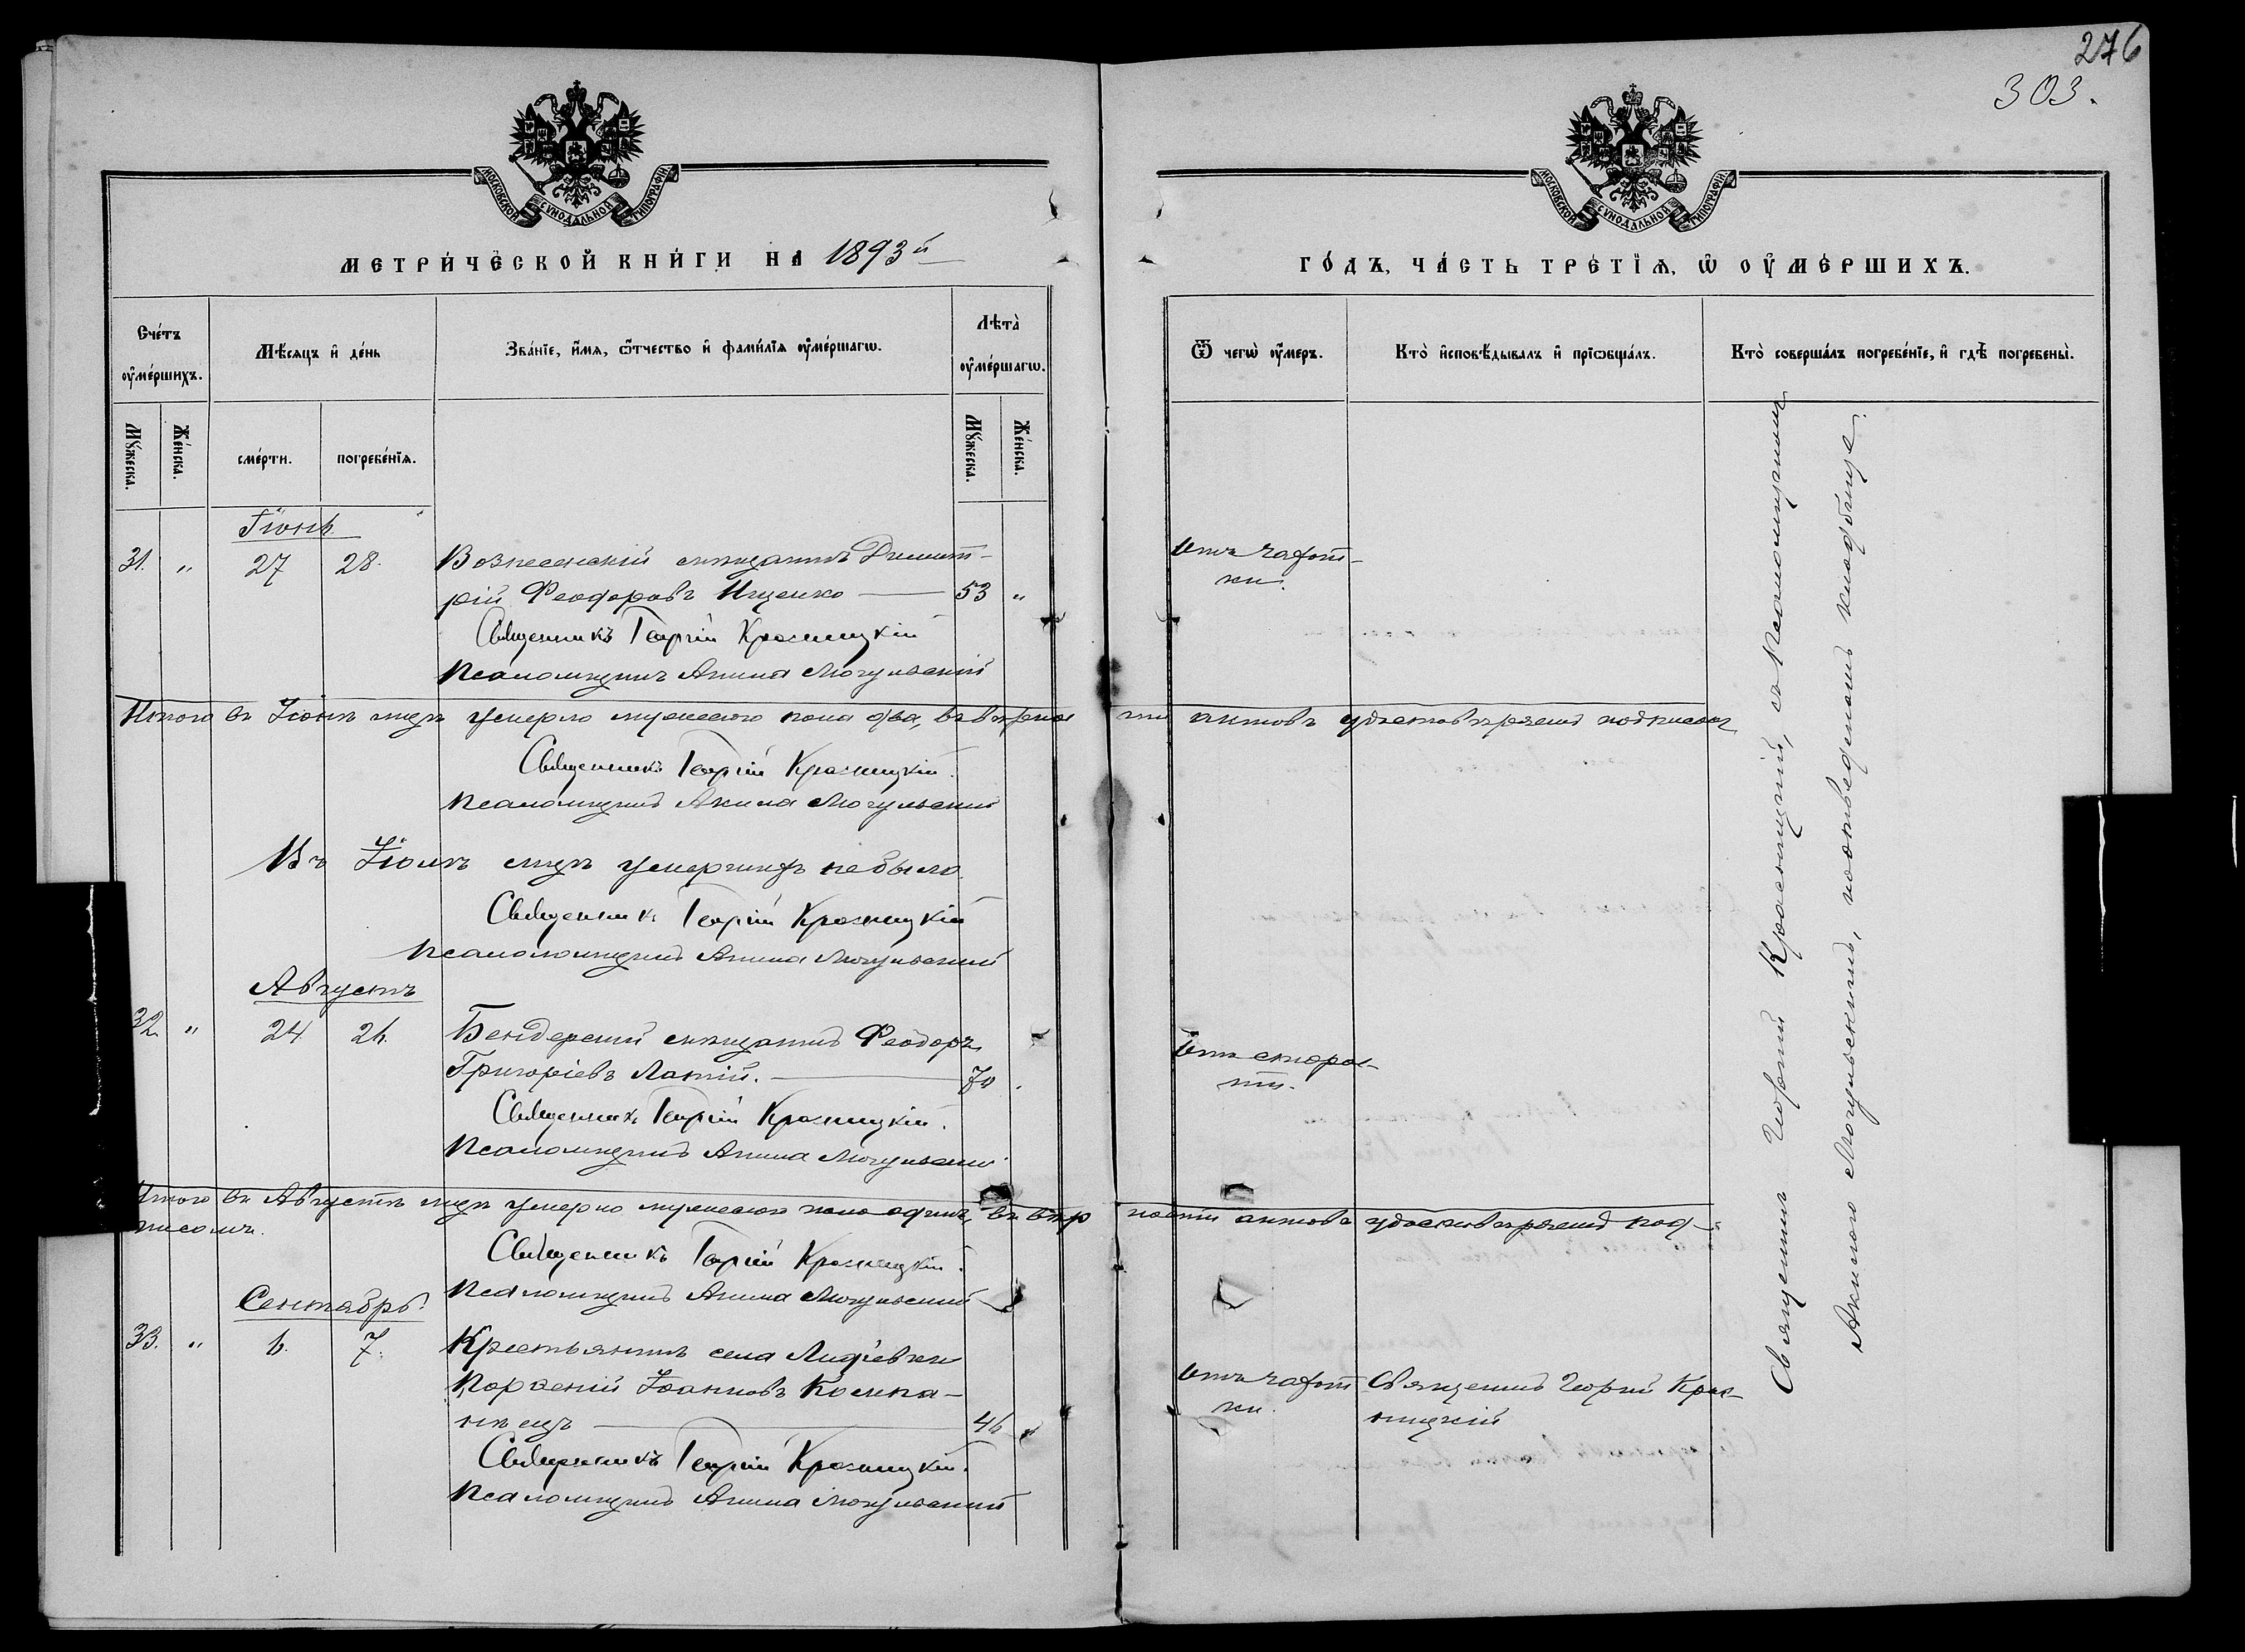 276
303.
МОСКОВСКОЙ СѴНОДАЛЬНОЙ ТИПОГРАФІИ
МОСКОВСКОЙ СѴНОДАЛЬНОЙ ТИПОГРАФІИ
МЕТРИ́ЧЕСКОЙ КНИ́ГИ НА 1893й
ГО́ДЪ, ЧА́СТЬ ТРЕ́ТІѦ, Ѽ ОУ҆МЕ́РШИХЪ.
Сче́тъ оу҆ме́ршихъ.
Мѣ́сѧцъ и҆ де́нь
Зва́нїе, и҆́мѧ, ѻ҆́тчество и҆ фами́лїѧ оу҆ме́ршагѡ.
Лѣта̀ оу҆ме́ршагѡ.
Ѿ чегѡ̀ оу҆́меръ.
Кто̀ и҆сповѣ́дывалъ и҆ прїѡбща́лъ.
Кто̀ соверша́лъ погребе́нїе, и҆ гдѣ̀ погребены̀.
Мꙋ́жеска.
Же́нска.
сме́рти.
погребе́нїѧ.
Мꙋ́жеска.
Же́нска.
Іюнь
31. " 27 28. Вознесенскій мѣщанинъ Димит-
рій Феодоровъ Ищенко 53 "
Отъ чахот-
ки.
Священникъ Георгій Красницкій
Псаломщикъ Акила Могульскій
Итого въ Іюнѣ мцѣ умерло мужескаго пола два, въ вѣрнос
ти актовъ удостовѣряемъ подписом
Священникъ Георгій Красницкій.
Псаломщикъ Акила Могульскій
Въ Іюлѣ мцѣ умершихъ не было.
Священникъ Георгій Красницкій
Псаломщикъ Акила Могульскій
Августъ
32. " 24 26. Бендерскій мѣщанинъ Феодоръ
Григоріевъ 70
Отъ старос-
ти.
Священникъ Георгій Красницкій.
Псаломщикъ Акила Могульскій
Итого въ Августѣ мцѣ умерло мужескаго пола одинъ, въ вѣр
ности актовъ удостовѣряемъ под-
писомъ.
Священникъ Георгій Красницкій.
Псаломщикъ Акила Могульскій
Сентябрь.
33. " 6. 7. Крестьянинъ села Лидіевки
Іоанновъ
46 "
Отъ чахот
ки.
Священникъ Георгій Крас-
ницкій
Священникъ Георгій Красницкій.
Псаломщикъ Акила Могульскій
Священникъ Георгій Красницкій, съ Псаломщикомъ
Акилою Могульскимъ, на кладбище.